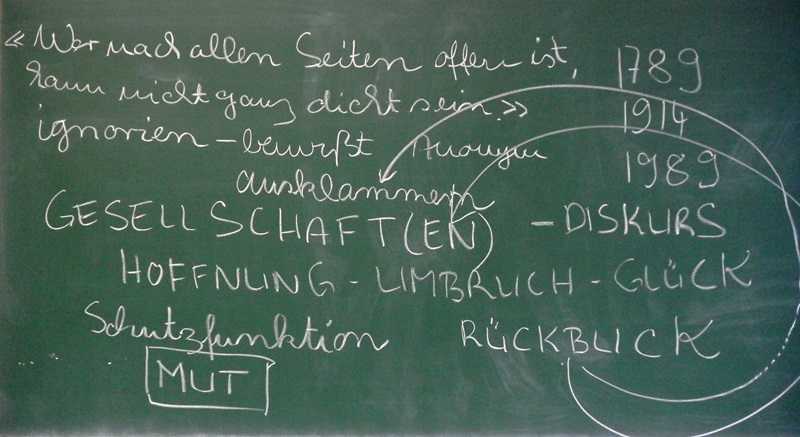 « Wer nach allen Seiten offen ist, 1789
kann nicht ganz dicht sein. » 1914
ignorieren – bewußt Anonym 1989
ausklammern
GESELLSCHAFT(EN) – DISKURS
HOFFNUNG - UMBRUCH - GLÜCK
Schutzfunktion RÜCKBLICK
MUT